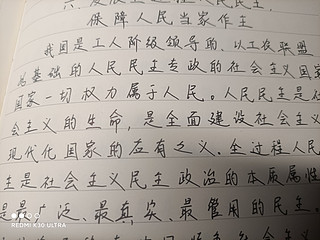 保障人民当家作主
我国是工人阶级领导的、以工农联盟
为基础的人民民主专政的社会主义国家
国家一切权力属于人民。人民民主是社
会主义的生命，是全面建设社会主义
现代化国家的应有之义。全过程人民
主是社会主义民主政治的本质属性
是最广泛、最真实、最管用的民主。
REDMI K30 ULTRA